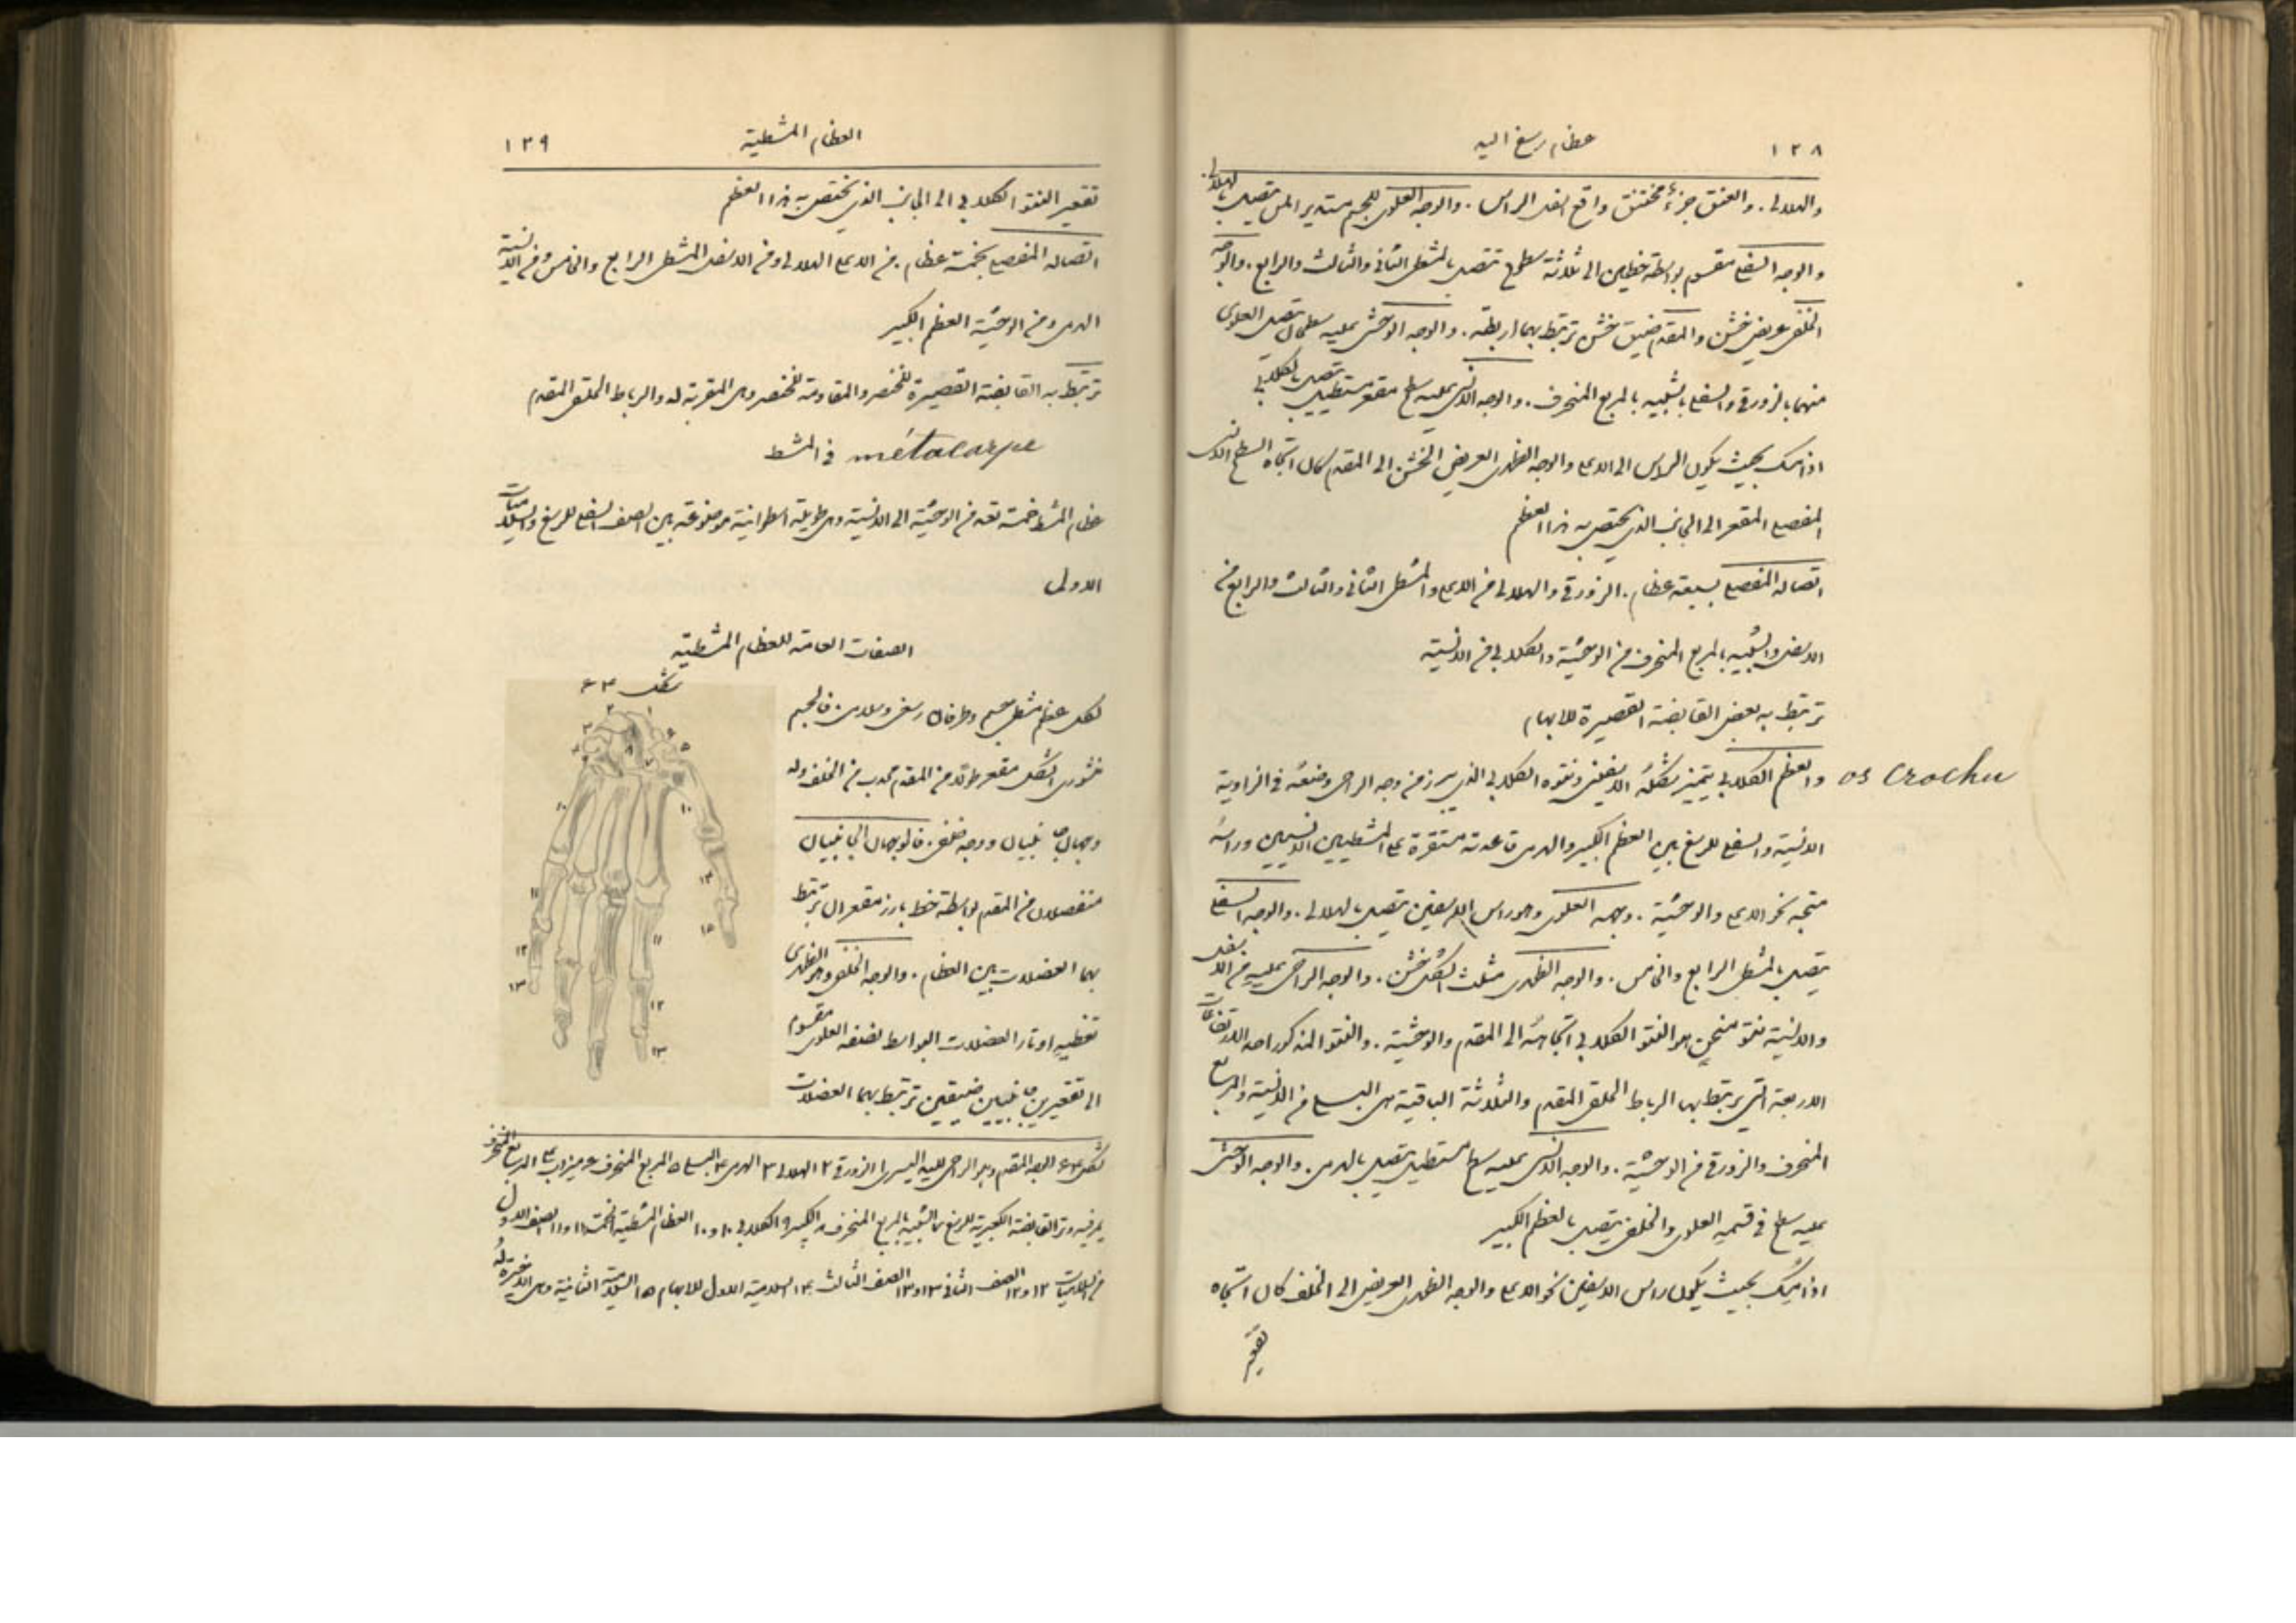 ١٣٨
عظام رسغ اليد
والهلالي. والعنق جزء مختنق واقع اسفل الراس. والوجه العلوي للجسم مستدير املس يتصل بالهلالي.
والوجه السفلي مقسوم بواسطة خطين الى ثلاثة سطوح تتصل بالمشطي الثاني والثالث والرابع. والوجه
الخلفي عريض خشن والمقدم ضيق خشن ترتبط بهما اربطة. والوجه الوحشي عليه سطحان يتصل العلوي
منهما بالزورقي والسفلي بالشبيه بالمربع المنحرف. والوجه الانسي عليه سطح مقعر مستطيل يتصل بالكلابي
اذا امسك بحيث يكون الراس الى الاعلى والوجه الظهري العريض الخشن الى المقدم كان اتجاه السطح الانسي
المفصلي المقعر الى الجانب الذي يختص به هذا العظم
اتصاله المفصلي بسبعة عظام. الزورقي والهلالي من الاعلى والمشطي الثاني والثالث والرابع من
الاسفل والشبيه بالمربع المنحرف من الوحشية والكلابي من الانسية
ترتبط به بعض القابضة القصيرة للابهام
والعظم الكلابي يتميز بشكله الاسفيني ونتوه الكلابي الذي يبرز من وجه الراحي وضعه في الزاوية os crochu
الانسية والسفلى للرسغ بين العظم الكبير والهرمي قاعدته مستقرة على المشطيين الانسيين وراسه
متجه نحو الاعلى والوحشية. وجهه العلوي وهو راس الاسفين يتصل بالهلالي. والوجه السفلي
يتصل بالمشطي الرابع والخامس. والوجه الظهري مثلث الشكل خشن. والوجه الراحي عليه من الاسفل
والانسية نتو منحن هو النتو الكلابي اتجاهه الى المقدم والوحشية. والنتو المذكور احد الارتفاعات
الاربعة التي يرتبط بها الرباط الحلقي المقدم والثلاثة الباقية هي البسلي من الانسية والمربع
المنحرف والزورقي من الوحشية. والوجه الانسي عليه سطح مستطيل يتصل بالهرمي. والوجه الوحشي
عليه سطح في قسمه العلوي والخلفي يتصل بالعظم الكبير
اذا امسك بحيث يكون راس الاسفين نحو الاعلى والوجه الظهري العريض الى الخلف كان اتجاه
تقعير
العظام المشطية
١٣٩
تقعير النتو الكلابي الى الجانب الذي يختص به هذا العظم
اتصاله المفصلي بخمسة عظام. من الاعلى الهلالي ومن الاسفل المشطي الرابع والخامس ومن الانسية
الهرمي ومن الوحشية العظم الكبير
ترتبط به القابضة القصيرة للخنصر والمقاومة للخنصر وهي المقربة له والرباط الحلقي المقدم
في المشط métacarpe
عظام المشط خمسة تعد من الوحشية الى الانسية وهي طويلة اسطوانية موضوعة بين الصف السفلي للرسغ والسلاميات
الاولى
الصفات العامة للعظام المشطية
لكل عظم مشطي جسم وطرفان رسغي وسلامي. فالجسم
منشوري الشكل مقعر طولا من المقدم محدب من الخلف وله
وجهان جانبيان ووجه خلفي. فالوجهان الجانبيان
منفصلان من المقدم بواسطة خط بارز مقعران ترتبط
بهما العضلات بين العظام. والوجه الخلفي وهو الظهري
تغطيه اوتار العضلات البواسط نصفه العلوي مقسوم
الى تقعيرين جانبيين ضيقين ترتبط بهما العضلات
شكل ٣٤
شكل ٣٤ الوجه المقدم وهو الراحي لليد اليسرى ١ الزورقي ٢ الهلالي ٣ الهرمي ٤ البسلي ٥ المربع المنحرف ٦ ميزاب على المربع المنحرف
يمر فيه وتر القابضة الكعبرية للرسغ ٧ الشبيه بالمربع المنحرف ٨ الكبير ٩ الكلابي ١٠ و ١٠ العظام المشطية الخمسة ١١ و ١١ الصف الاول
من السلاميات ١٢ و ١٢ الصف الثاني ١٣ و ١٣ الصف الثالث ١٤ السلامية الاولى للابهام ١٥ السلامية الثانية وهي الاخيرة له